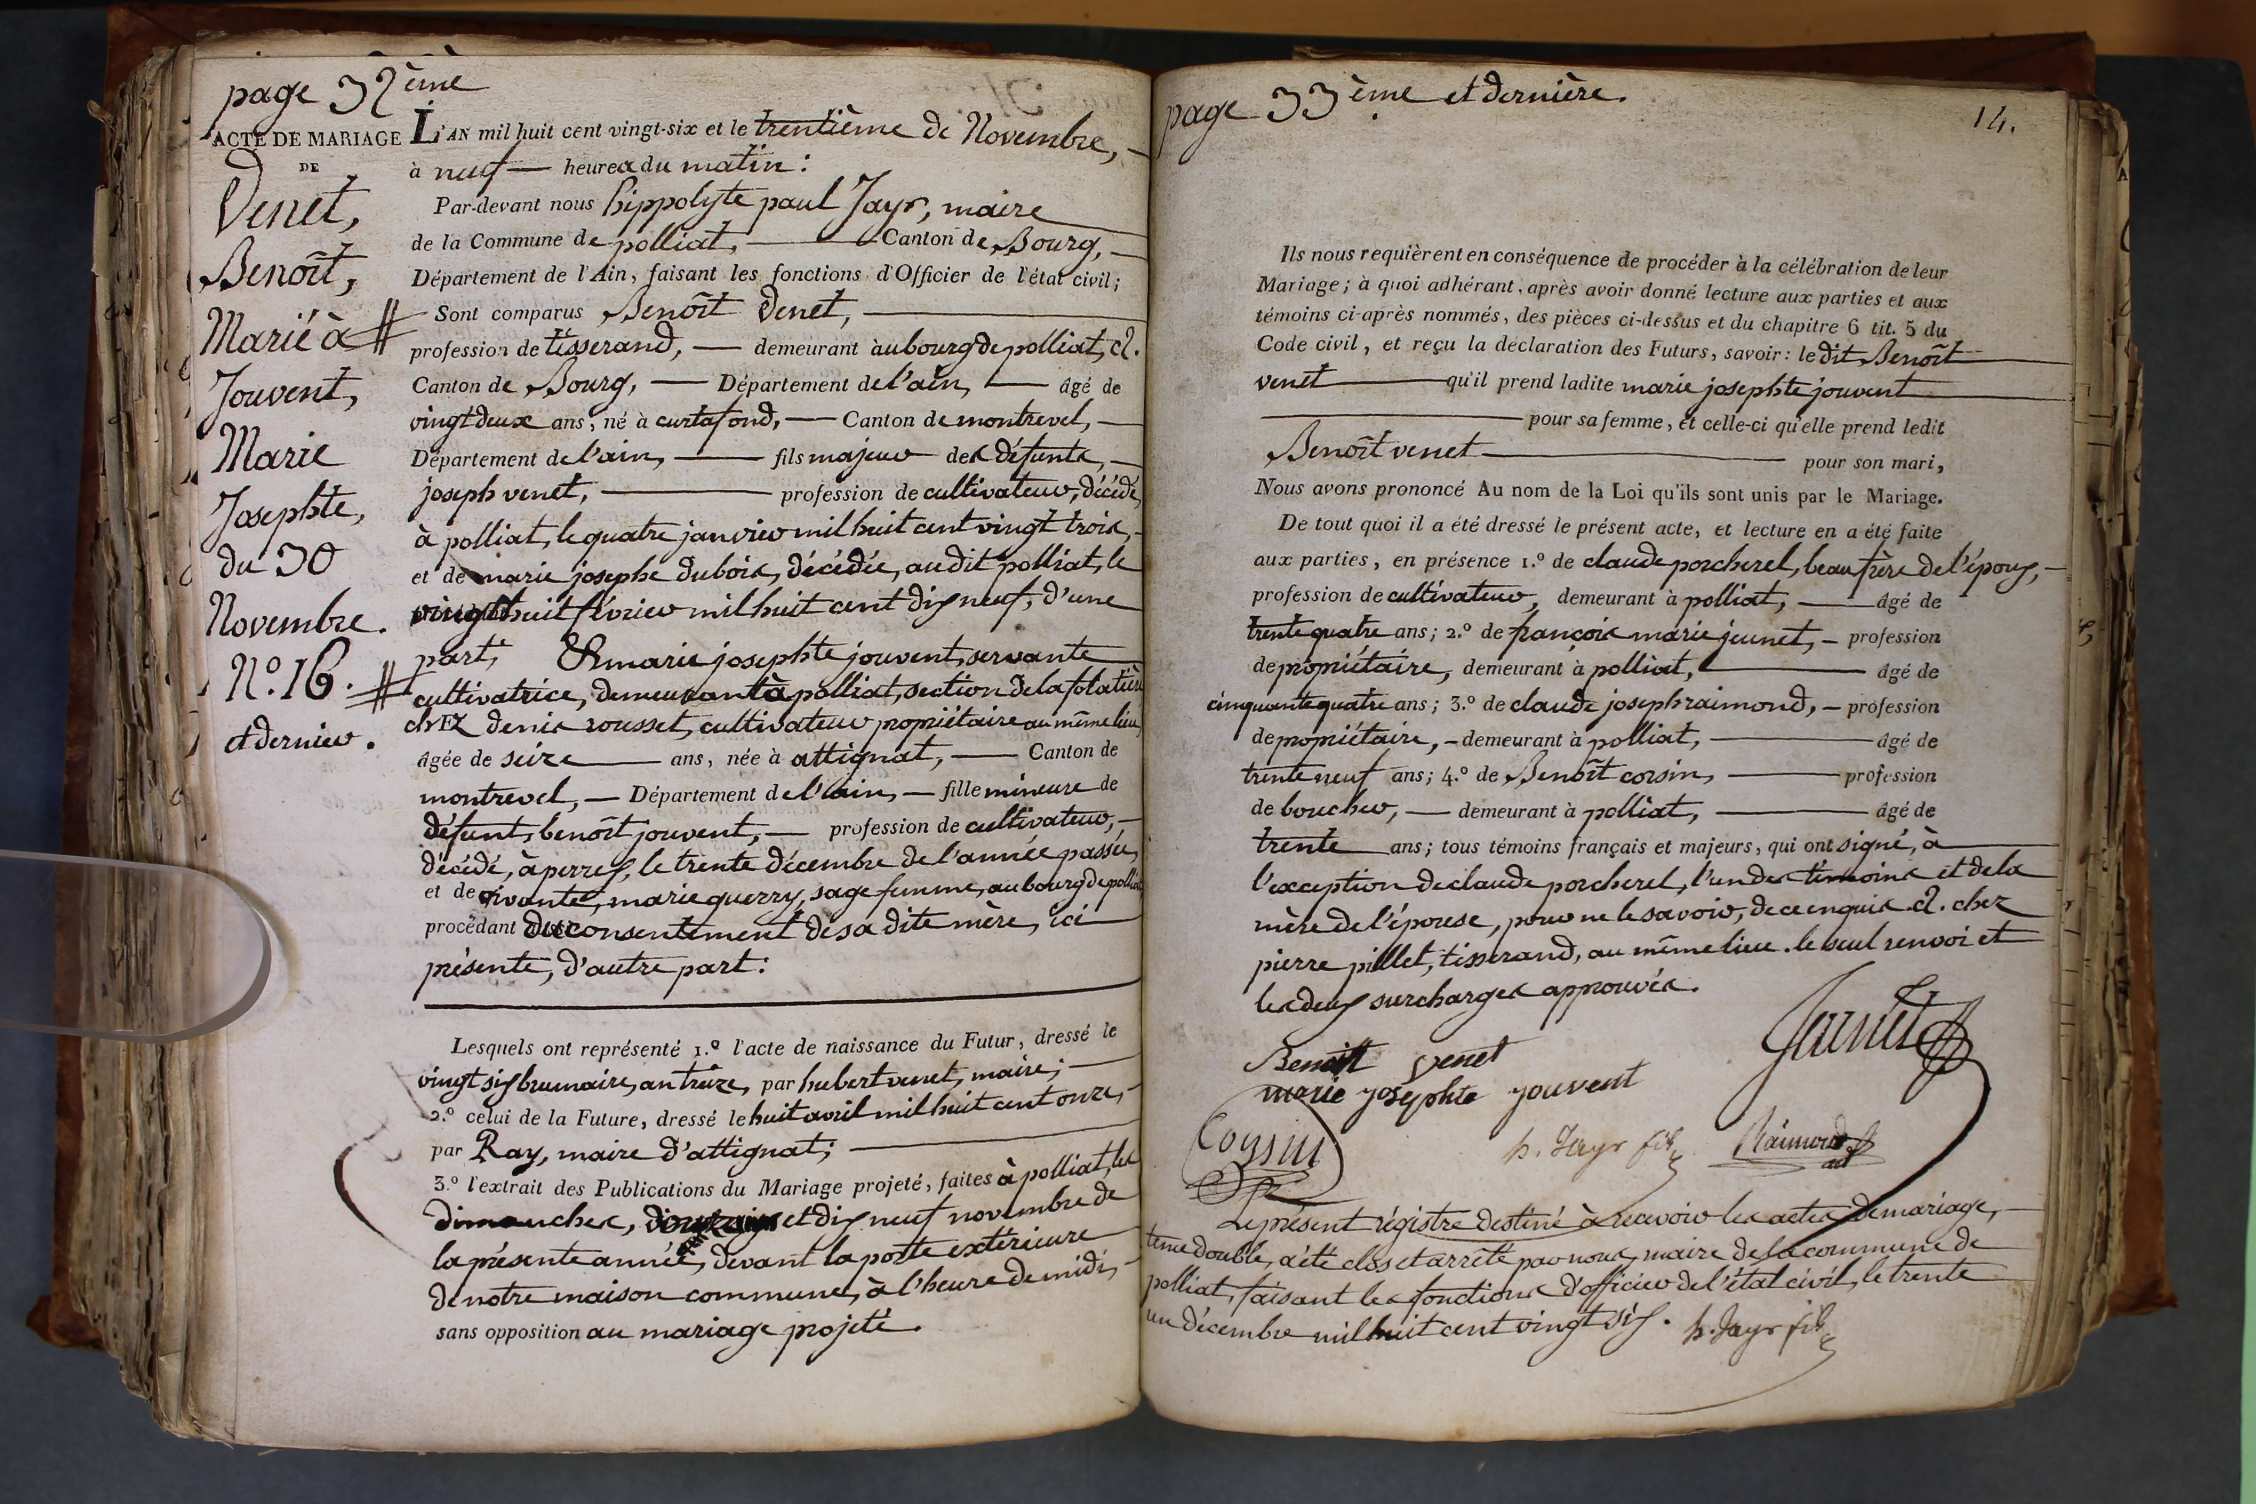 page 32ème
ACTE DE MARIAGE
DE
Venet,
Benoît,
Marié à #
Jouvent,
Marie
Josephte,
du 30
Novembre.
N.º 16. #
et dernier.
L'AN mil huit cent vingt-six et le trentième de Novembre,
à neuf heures du matin :
Par-devant nous hippolyte paul Jayr, maire
de la Commune de polliat, Canton de Bourg,
Département de l'Ain, faisant les fonctions d'Officier de l'état civil;
Sont comparus Benoît Venet,
profession de tisserand, demeurant au bourg de polliat, a.
Canton de Bourg, Département de l'ain, âgé de
vingt deux ans, né à curtafond, Canton de montrevel,
Département de l'ain, fils majeur des défunts,
joseph venet, profession de cultivateur, décédé,
à polliat, le quatre janvier mil huit cent vingt trois,
et de marie josephe dubois, décédée, au dit polliat, le
vingt huit février mil huit cent dix neuf, d'une
part; Et marie josephte jouvent, servante
cultivatrice, demeurant à polliat, section de la folatière
chez denis rousset, cultivateur propriétaire au même lieu,
âgée de seize ans, née à attignat, Canton de
montrevel, Département de l'ain, fille mineure de
défunt, benoît jouvent, profession de cultivateur,
décédé, à perrex, le trente décembre de l'année passée,
et de vivante, marie guerry, sage femme, au bourg de polliat
procédant du consentement de sa dite mère, ici
présente, d'autre part :
Lesquels ont représenté 1.º l'acte de naissance du Futur, dressé le
vingt six brumaire, an treize, par hubert venet, maire;
2.º celui de la Future, dressé le huit avril mil huit cent onze,
par Ray, maire d'attignat;
3.º l'extrait des Publications du Mariage projeté, faites à polliat, les
dimanches, et dix neuf novembre de
la présente année, devant la porte extérieure
de notre maison commune, à l'heure de midi,
sans opposition au mariage projeté.
page 33ème et dernière.
14.
Ils nous requièrent en conséquence de procéder à la célébration de leur
Mariage; à quoi adhérant, après avoir donné lecture aux parties et aux
témoins ci-après nommés, des pièces ci-dessus et du chapitre 6 tit. 5 du
Code civil, et reçu la déclaration des Futurs, savoir : le dit Benoît
venet qu'il prend ladite marie josephte jouvent
pour sa femme, et celle-ci qu'elle prend ledit
Benoît venet pour son mari,
Nous avons prononcé Au nom de la Loi qu'ils sont unis par le Mariage.
De tout quoi il a été dressé le présent acte, et lecture en a été faite
aux parties, en présence 1.º de claude porcherel, beau frère de l'époux,
profession de cultivateur, demeurant à polliat, âgé de
trente quatre ans; 2.º de françois marie jeunet, profession
de propriétaire, demeurant à polliat, âgé de
cinquante quatre ans; 3.º de claude joseph raimond, profession
de propriétaire, demeurant à polliat, âgé de
trente neuf ans; 4.º de Benoît corsin, profession
de boucher, demeurant à polliat, âgé de
trente ans; tous témoins français et majeurs, qui ont signé, à
l'exception de claude porcherel, l'un des témoins et de la
mère de l'épouse, pour ne le savoir, de ce enquis. a. chez
pierre pillet, tisserand, au même lieu. le seul renvoi et
les deux surcharges approuvés.
Benoitt venet
marie josephte jouvent
Corsin
h. Jayr fils
Raimond
Le présent régistre destiné à recevoir les actes de mariage,
tenu double, a été clos et arrêté par nous, maire de la commune de
polliat, faisant les fonctions d'officier de l'état civil, le trente
un décembre mil huit cent vingt six. h. Jayr fils